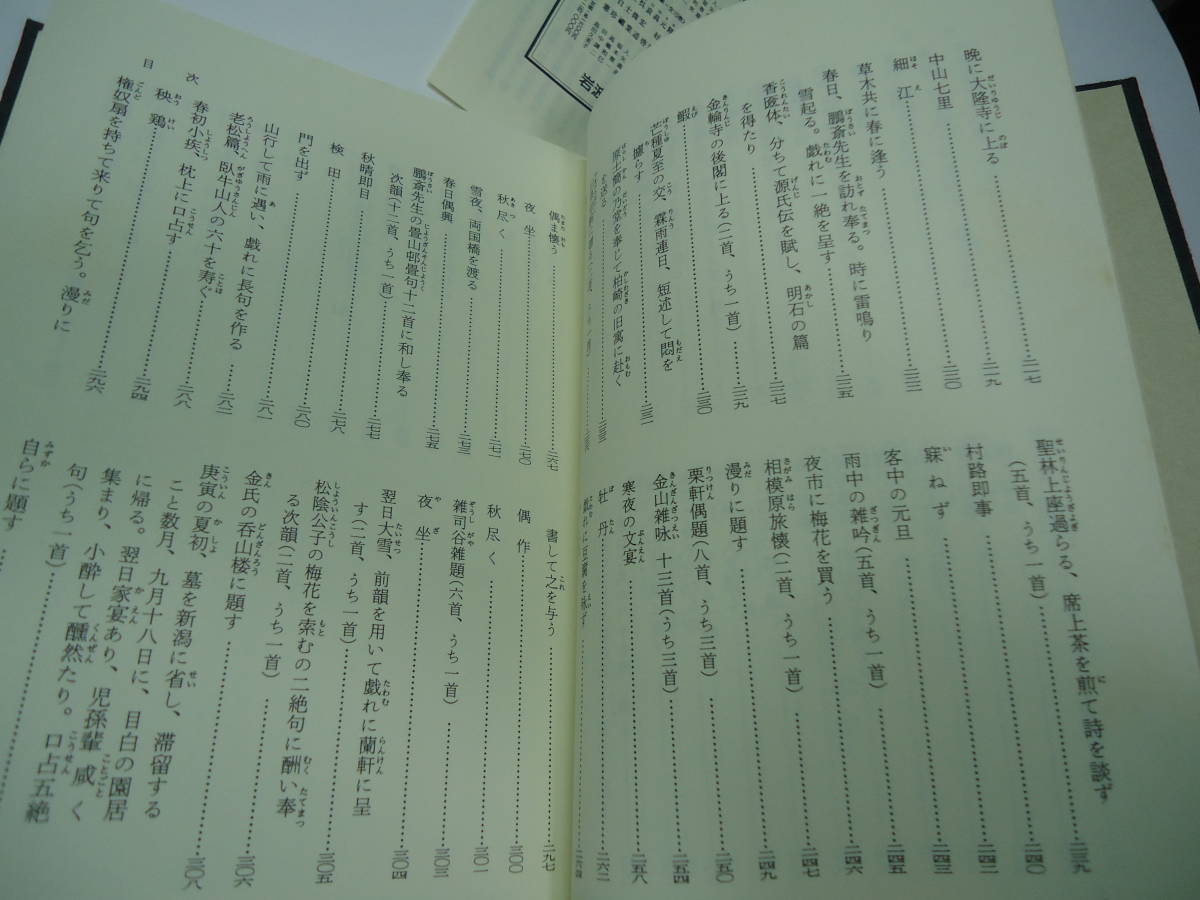 晩に大隆寺に上る……二一七
中山七里……二一九
細江……二二〇
草木共に春に逢う……二二二
春日、鵬斎先生を訪れ奉る。時に雷鳴り
雪起る。戯れに一絶を呈す……二二五
香匳体、分ちて源氏伝を賦し、明石の篇
を得たり……二二七
金輪寺の後閣に上る(二首、うち一首)……二二九
蝦……二三〇
芒種夏至の交、霖雨連日、短述して悶を
攄らす……二三一
原士簡の乃堂を奉じて柏崎の旧寓に赴く
を送る……二三三
聖林上座過らる、席上茶を煎て詩を談ず
……二三九
(五首、うち一首)……二四〇
村路即事……二四二
寐ねず……二四三
客中の元旦……二四五
雨中の雑吟(五首、うち一首)……二四六
夜市に梅花を買う……二四七
相模原旅懐(二首、うち一首)……二四九
漫りに題す……二五〇
栗軒偶題(八首、うち三首)……二五四
金山雑咏 十三首(うち三首)……二五五
寒夜の文宴……二五八
牡丹……二六二
戯れに豆腐を咏ず……二六四
偶ま懐う……二六七
夜坐……二七〇
秋尽く……二七一
雪夜、両国橋を渡る……二七三
春日偶興……二七五
鵬斎先生の畳山邨畳句十二首に和し奉る
次韻(十二首、うち一首)……二七七
秋晴即目……二七八
検田……二八〇
門を出ず……二八一
山行して雨に遇い、戯れに長句を作る
……二八二
老松篇、臥牛山人の六十を寿ぐ……二八八
春初小疾、枕上に口占す……二九四
秧鶏……二九六
権奴扇を持ちて来りて句を乞う。漫りに
目次
書して之を与う……二九七
偶作……三〇〇
秋尽く……三〇一
雑司谷雑題(六首、うち一首)……三〇三
夜坐……三〇四
翌日大雪、前韻を用いて戯れに蘭軒に呈
す(二首、うち一首)……三〇五
松陰公子の梅花を索むの二絶句に酬い奉
る次韻(二首、うち一首)……三〇六
金氏の呑山楼に題す……三〇八
庚寅の夏初、墓を新潟に省し、滞留する
こと数月、九月十八日に、目白の園居
に帰る。翌日家宴あり、児孫輩咸く
集まり、小酔して醺然たり。口占五絶
句(うち一首)……
自らに題す……
岩波